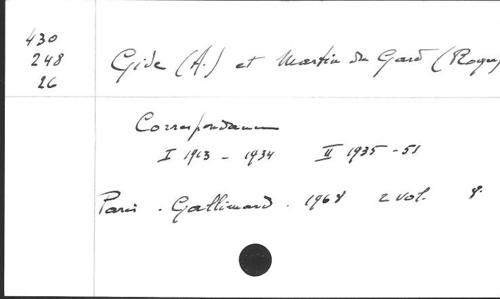 430
248
26
Gide (A.) et Martin du Gard (Roger)
Correspondance
I 1913 - 1934 II 1935 - 51
Paris . Gallimard . 1968 2 vol. 8°